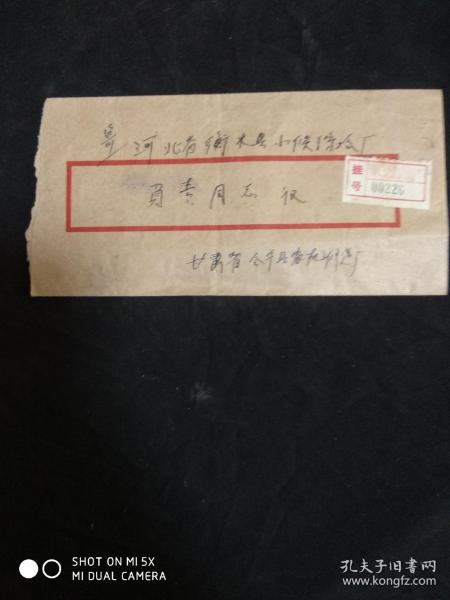 寄河北省衡水县小侯铸冶厂
挂号
00226
负责同志收
甘肃省
SHOT ON MI 5X
MI DUAL CAMERA
孔夫子旧书网
www.kongfz.com